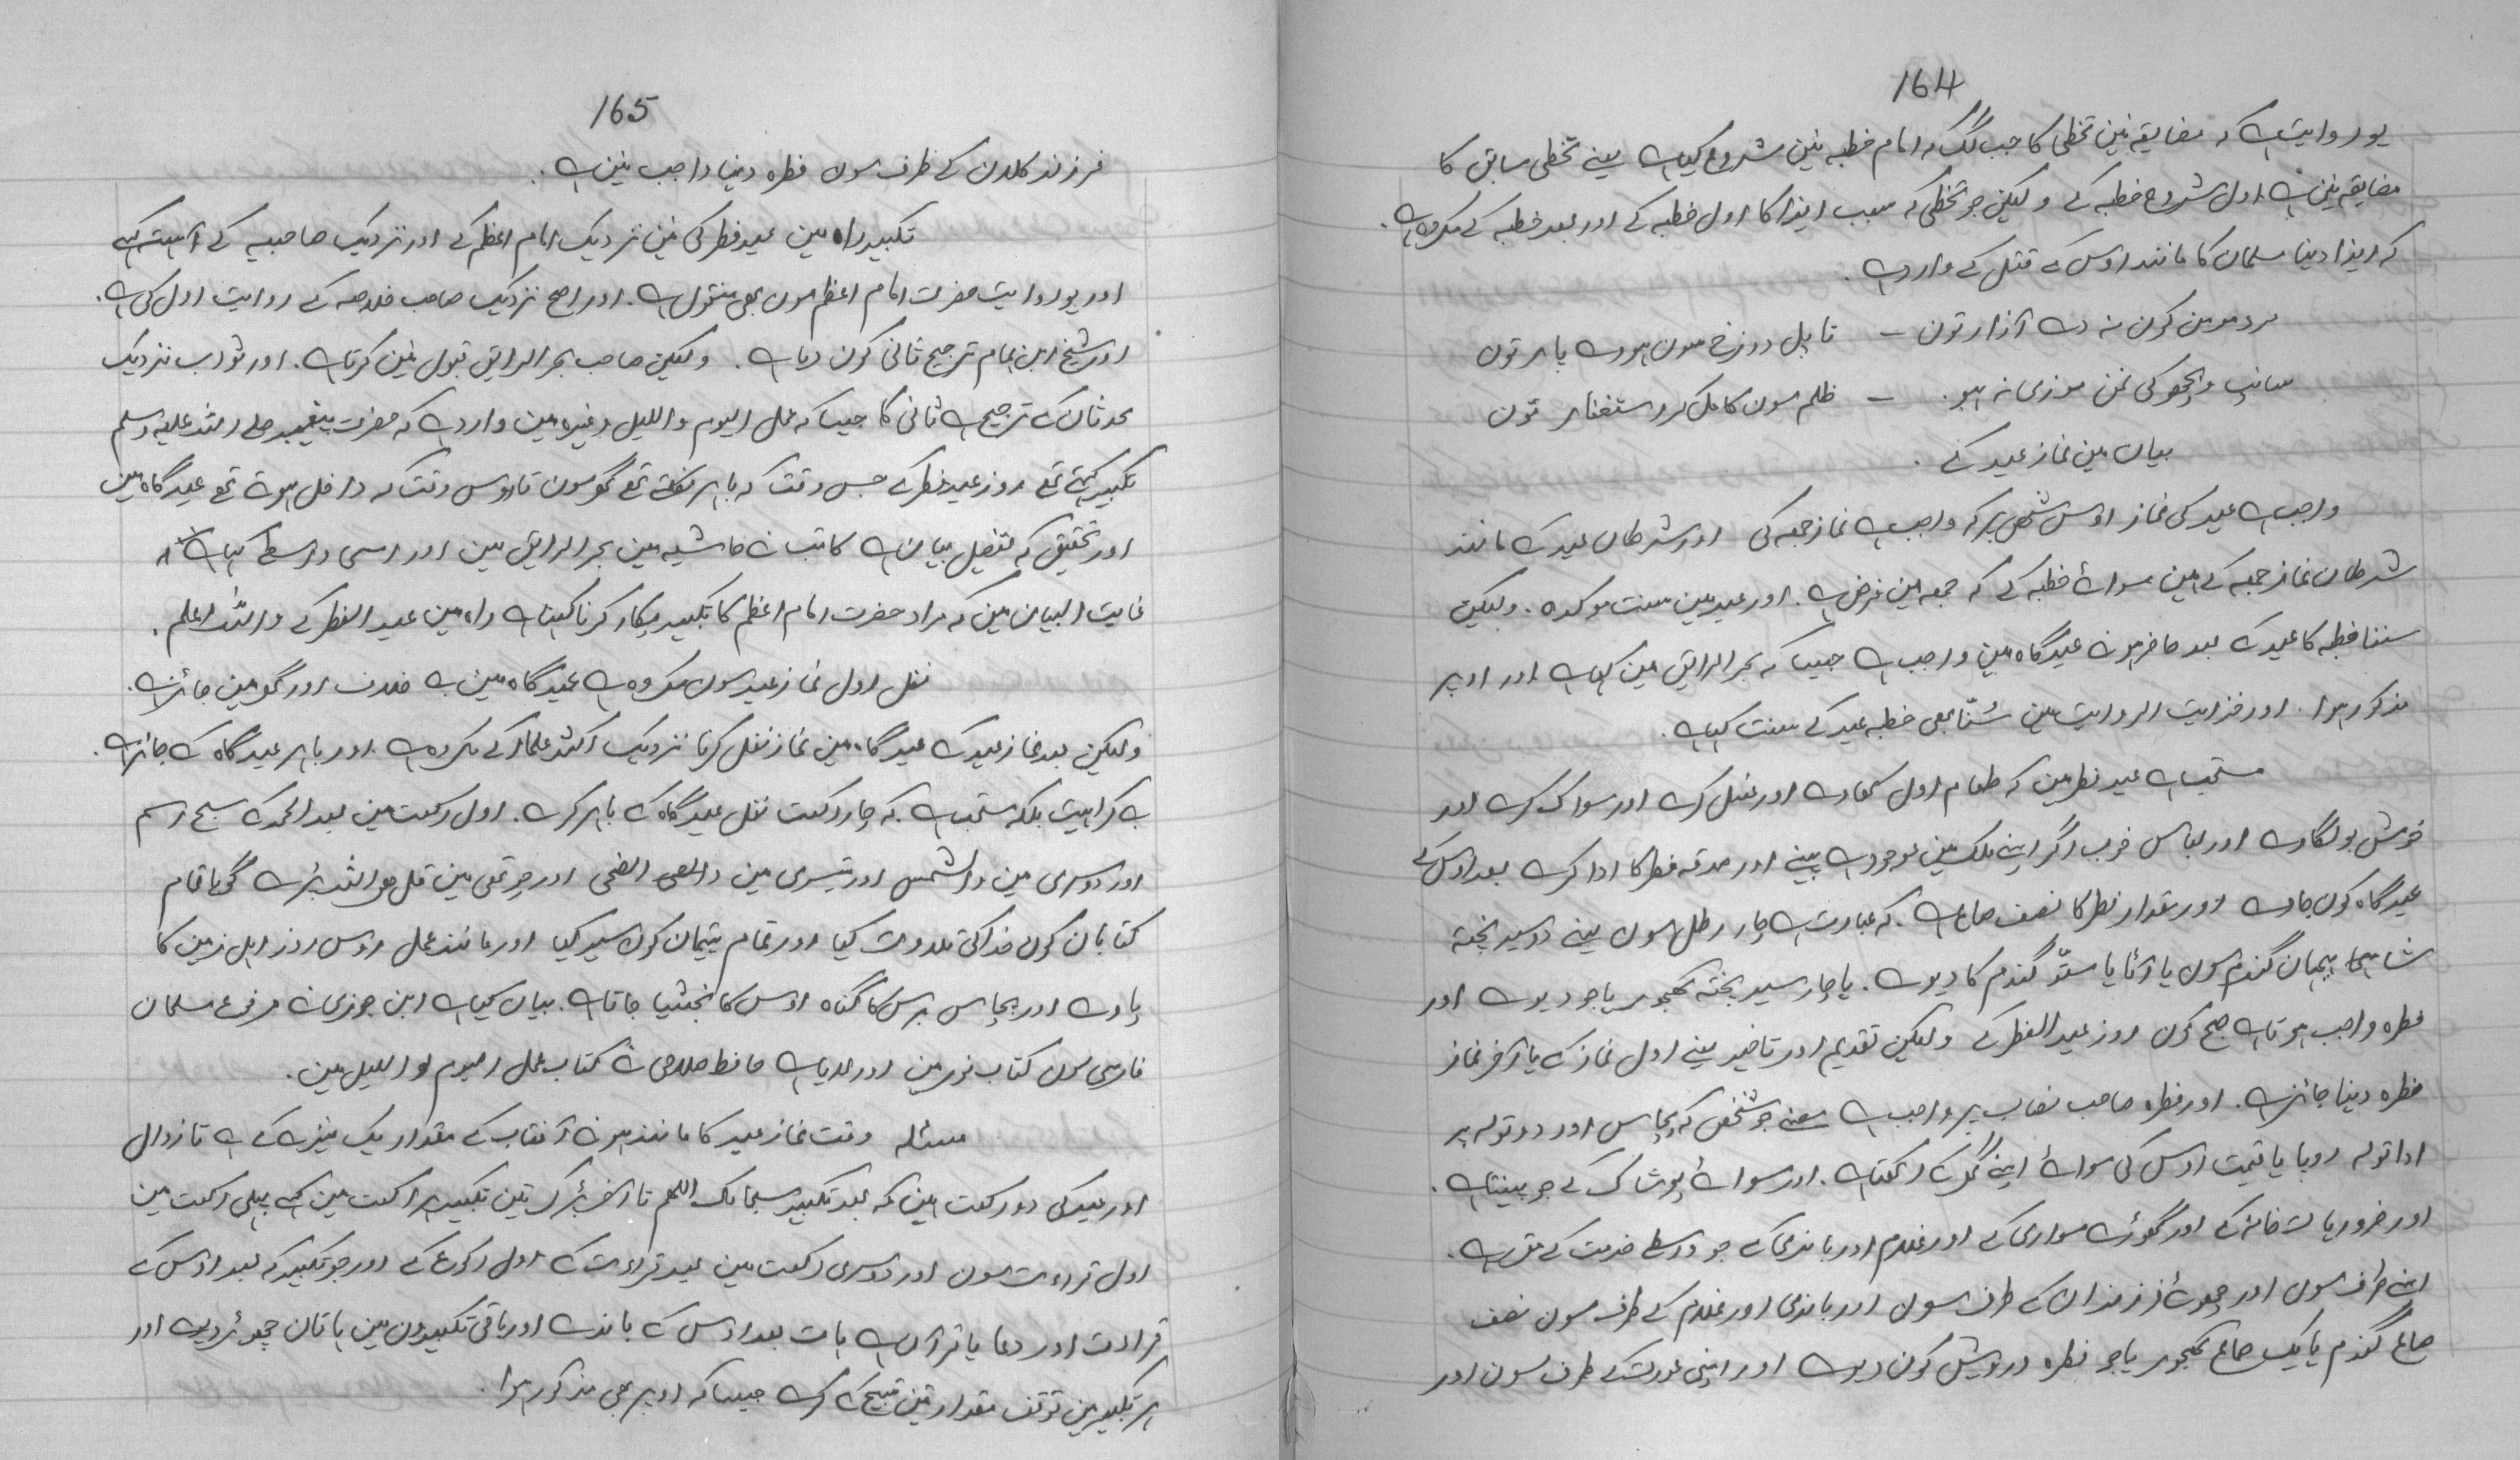 164
یو روایت ہے کہ مضایقہ نین تخطی کا جب لگ کہ امام خطبہ نین شروع کیا ہے یعنے تخطی سابق کا
مضایقہ نین ہے اول شروع خطبہ کے ولیکن جو تخطی کہ سبب ایذا کا اول خطبہ کے اور بعد خطبہ کے مکروہ ہے.
کہ ایذا دینا مسلمان کا مانند اوس کے قتل کے وارد ہے.
مرد مومن کون نہ دے آزار تون – تا پل دوزخ سون ہووے پار تون
سانپ و بچھو کی نمن موذی نہ ہو. – ظلم سون کامل کر استغفار تون
بیان مین نماز عید کے.
واجب ہے عید کی نماز اوس شخص پر کہ واجب ہے نماز جمعہ کی اور شرطان عید کے مانند
شرطان نماز جمعہ کے ہین سوائے خطبہ کے کہ جمعہ مین فرض ہے. اور عید مین سنت موکدہ. ولیکن
سننا خطبہ کا عید کے بعد حاضر ہونے عیدگاہ مین واجب ہے جیسا کہ بحر الرایق مین کہا ہے اور اوپر
مذکور ہوا. اور خزایت الروایت مین سُنّا بھی خطبہ عید کے سنت کہا ہے.
مستحب ہے عید فطر مین کہ طعام اول کھاوے اور غسل کرے اور مسواک کرے اور
خوش بو لگاوے اور لباس خوب اگر اپنے ملک مین موجود ہے پہنے اور صدقہ فطر کا ادا کرے بعد اوس کے
عیدگاہ کون جاوے اور مقدار فطر کا نصف صاع ہے. کہ عبارت ہے چار رطل سون یعنے دو سیر پختہ
شاہجہا پیمان گندم سون یا آٹا یا ستّو گندم کا دیوے. یا چار سیر پختہ کھجور یا جو دیوے اور
فطرہ واجب ہوتا ہے صبح کون روز عید الفطر کے ولیکن تقدیم اور تاخیر یعنے اول نماز کے یا آخر نماز
فطرہ دینا جائز ہے. اور فطرہ صاحب نصاب پر واجب ہے یعنے جو شخص کہ پچاس اور دو تولہ پر
ادا تولہ روپا یا قیمت اوس کی سوائے اپنے گھر کے رکھتا ہے. اور سوائے پوشاک کے جو پہنتا ہے.
اور ضروریات خانہ کے اور گھوڑے سواری کے اور غلام اور باندی کے جو واسطے خدمت کے مقرر ہے.
اپنے طرف سون اور چھوٹے فرزندان کے طرف سون اور باندی اور غلام کے طرف سون نصف
صاع گندم یا یک صاع کھجور یا جو فطرہ درویش کون دیوے اور اپنی عورت کے طرف سون اور
165
فرزند کلان کے طرف سون فطرہ دینا واجب نین ہے.
تکبیر راہ مین عید فطر کی نین نزدیک امام اعظم کے اور نزدیک صاحبیہ کے آہستہ کہے
اور یو روایت حضرت امام اعظم سون بھی منقول ہے. اور اصح نزدیک صاحب خلاصہ کے روایت اول کی ہے.
اور شیخ ابن ہمام ترجیح ثانی کون دیا ہے. ولیکن صاحب بحر الرایق قبول نین کرتا ہے. اور ثواب نزدیک
محدثان کے ترجیح ہے ثانی کا جیسا کہ عمل الیوم واللیل وغیرہ مین وارد ہے کہ حضرت پیغمبر صلے اللہ علیہ وسلم
تکبیر کہتے تھے روز عید فطر کے جس وقت کہ باہر نکلتے تھے گھر سون تا اوس وقت کہ داخل ہوتے تھے عیدگاہ مین
اور تحقیق کہ تفصیل بیان ہے کاتب نے حاشیہ مین بحر الرایق مین اور اسی واسطے کہا ہے
غایت البیان مین کہ مراد حضرت امام اعظم کا تکبیر پکار کر نا کہنا ہے راہ مین عید الفطر کے واللہ اعلم.
نفل اول نماز عید سون مکروہ ہے عیدگاہ مین بے خلاف اور گھر مین جائز ہے.
ولیکن بعد نماز عید کے عیدگاہ مین نماز نفل کرنا نزدیک اکثر علماء کے مکروہ ہے اور باہر عیدگاہ کے جائز ہے.
بے کراہیت بلکہ مستحب ہے. کہ چار رکعت نفل عیدگاہ کے باہر کرے. اول رکعت مین بعد الحمد کے سبح اسم
اور دوسری مین والشمس اور تیسری مین والضحی اور چوتھی مین قل ھو اللہ پڑے گویا تمام
کتابان کون خدا کی تلاوت کیا اور تمام یتیمان کون سیر کیا اور مانند عمل اوس روز اہل زمین کا
پاوے اور پچاس برس کا گناہ اوس کا بخشیا جاتا ہے. بیان کیا ہے ابن جوزی نے مرفوع سلمان
فارسی سون کتاب نور مین اور لایا ہے حافظ کتاب عمل الیوم و اللیل مین.
مسئلہ وقت نماز عید کا مانند ہونے آفتاب کے مقدار یک نیزے کے ہے تا زوال
اور عید کی دو رکعت ہین کہ بعد تکبیر سبحانک اللھم تا آخر پڑکے تین تکبیر ہر رکعت مین کہے پہلی رکعت مین
اول قراءت سون اور دوسری رکعت مین بعد قراءت کے اول رکوع کے اور جو تکبیر کہ بعد اوس کے
قراءت اور دعا یا قرآن ہے ہات بعد اوس کے باندے اور باقی تکبیرون مین ہاتان چھوڑ دیوے اور
ہر تکبیر مین توقف مقدار تین تسبیح کے کرے جیسا کہ اوپر بھی مذکور ہوا.